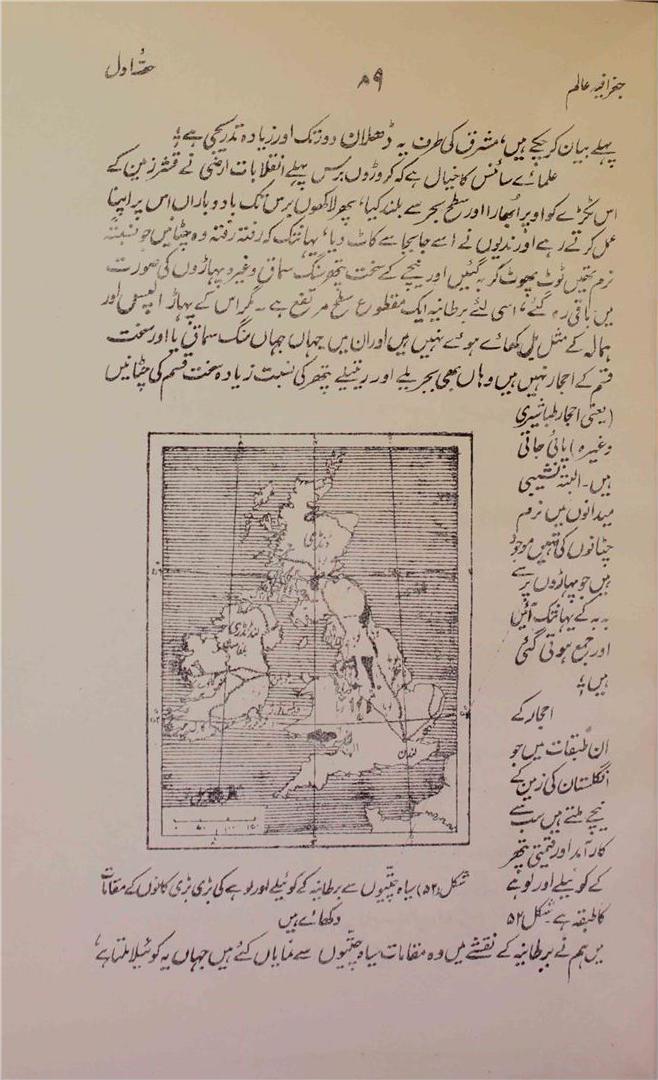 جغرافیہ عالم
۸۹
حصّہ اول
پہلے بیان کر چکے ہیں، مشرق کی طرف یہ ڈھلان دور تک اور زیادہ تدریجی ہے؛
علمائے سائنس کا خیال ہے کہ کروڑوں برس پہلے انقلابات ارضی نے قشر زمین کے
اس ٹکڑے کو اوپر اُبھارا اور سطح بحر سے بلند کیا، پھر لاکھوں برس تک باد و باراں اس پر اپنا
عمل کرتے رہے اور ندیوں نے اسے جا بجا سے کاٹ دیا، یہانتک کہ رفتہ رفتہ وہ چٹانیں جو نسبتہً
نرم تھیں ٹوٹ پھوٹ کر بہ گئیں اور نیچے کے سخت پتھر سنگ سماق وغیرہ پہاڑوں کی صورت
میں باقی رہ گئے، اسی لئے برطانیہ ایک مقطوع سطح مرتفع ہے۔ مگر اس کے پہاڑ ایلپس اور
ہمالہ کے مثل بل کھائے ہوئے نہیں ہیں اور ان میں جہاں جہاں سنگ سماق یا اور سخت
قسم کے احجار نہیں ہیں وہاں بھی بجریلے اور ریتیلے پتھر کی نسبت زیادہ سخت قسم کی چٹانیں
(یعنی احجار طباشیری
وغیرہ) پائی جاتی
ہیں۔ البتہ نشیبی
میدانوں میں نرم
چٹانوں کی تہیں موجود
ہیں جو پہاڑوں پر سے
بہ بہ کے یہانتک آئیں
اور جمع ہوتی گئی
ہیں؛
احجار کے
ان طبقات میں جو
انگلستان کی زمین کے
نیچے ملتے ہیں سب سے
کارآمد اور قیمتی پتھر
کے کوئیلے اور لوہے
کا طبقہ ہے۔ شکل ۵۲
ڈنڈی
لندنڈری
لندن
شکل (۵۲) سیاہ چتیوں سے برطانیہ کے کوئیلے اور لوہے کی بڑی بڑی کانوں کے مقامات
دکھائے ہیں
میں ہم نے برطانیہ کے نقشے میں وہ مقامات سیاہ چتیوں سے نمایاں کئے ہیں جہاں یہ کوئیلا ملتا ہے،